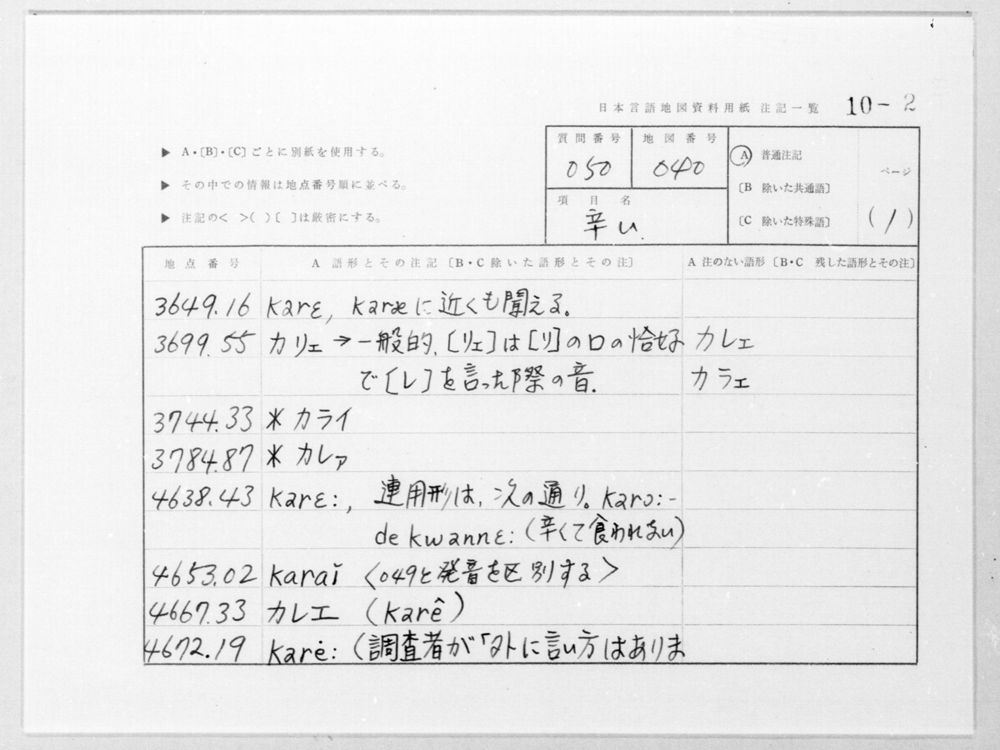 日本言語地図資料用紙 注記一覧 10-2
▶ A・〔B〕・〔C〕ごとに別紙を使用する。
▶ その中での情報は地点番号順に並べる。
▶ 注記の< >( )〔 〕は厳密にする。
質問番号 地図番号
050 040
項目名
辛い
Ⓐ 普通注記
〔B 除いた共通語〕
〔C 除いた特殊語〕
ページ
(1)
地点番号 A 語形とその注記〔B・C除いた語形とその注〕 A 注のない語形〔B・C 残した語形とその注〕
3649.16 karɛ, karæに近くも聞える。
3699.55 カリェ→一般的、[リェ]は[リ]の口の恰好 カレェ
で[レ]を言った際の音. カラェ
3744.33 * カライ
3784.87 * カレァ
4638.43 karɛ:, 連用形は、次の通り。karɔ:-
de kwannɛ: (辛くて食われない)
4653.02 karaï <049と発音を区別する>
4667.33 カレエ (karê)
4672.19 karė: (調査者が「外に言い方はありま